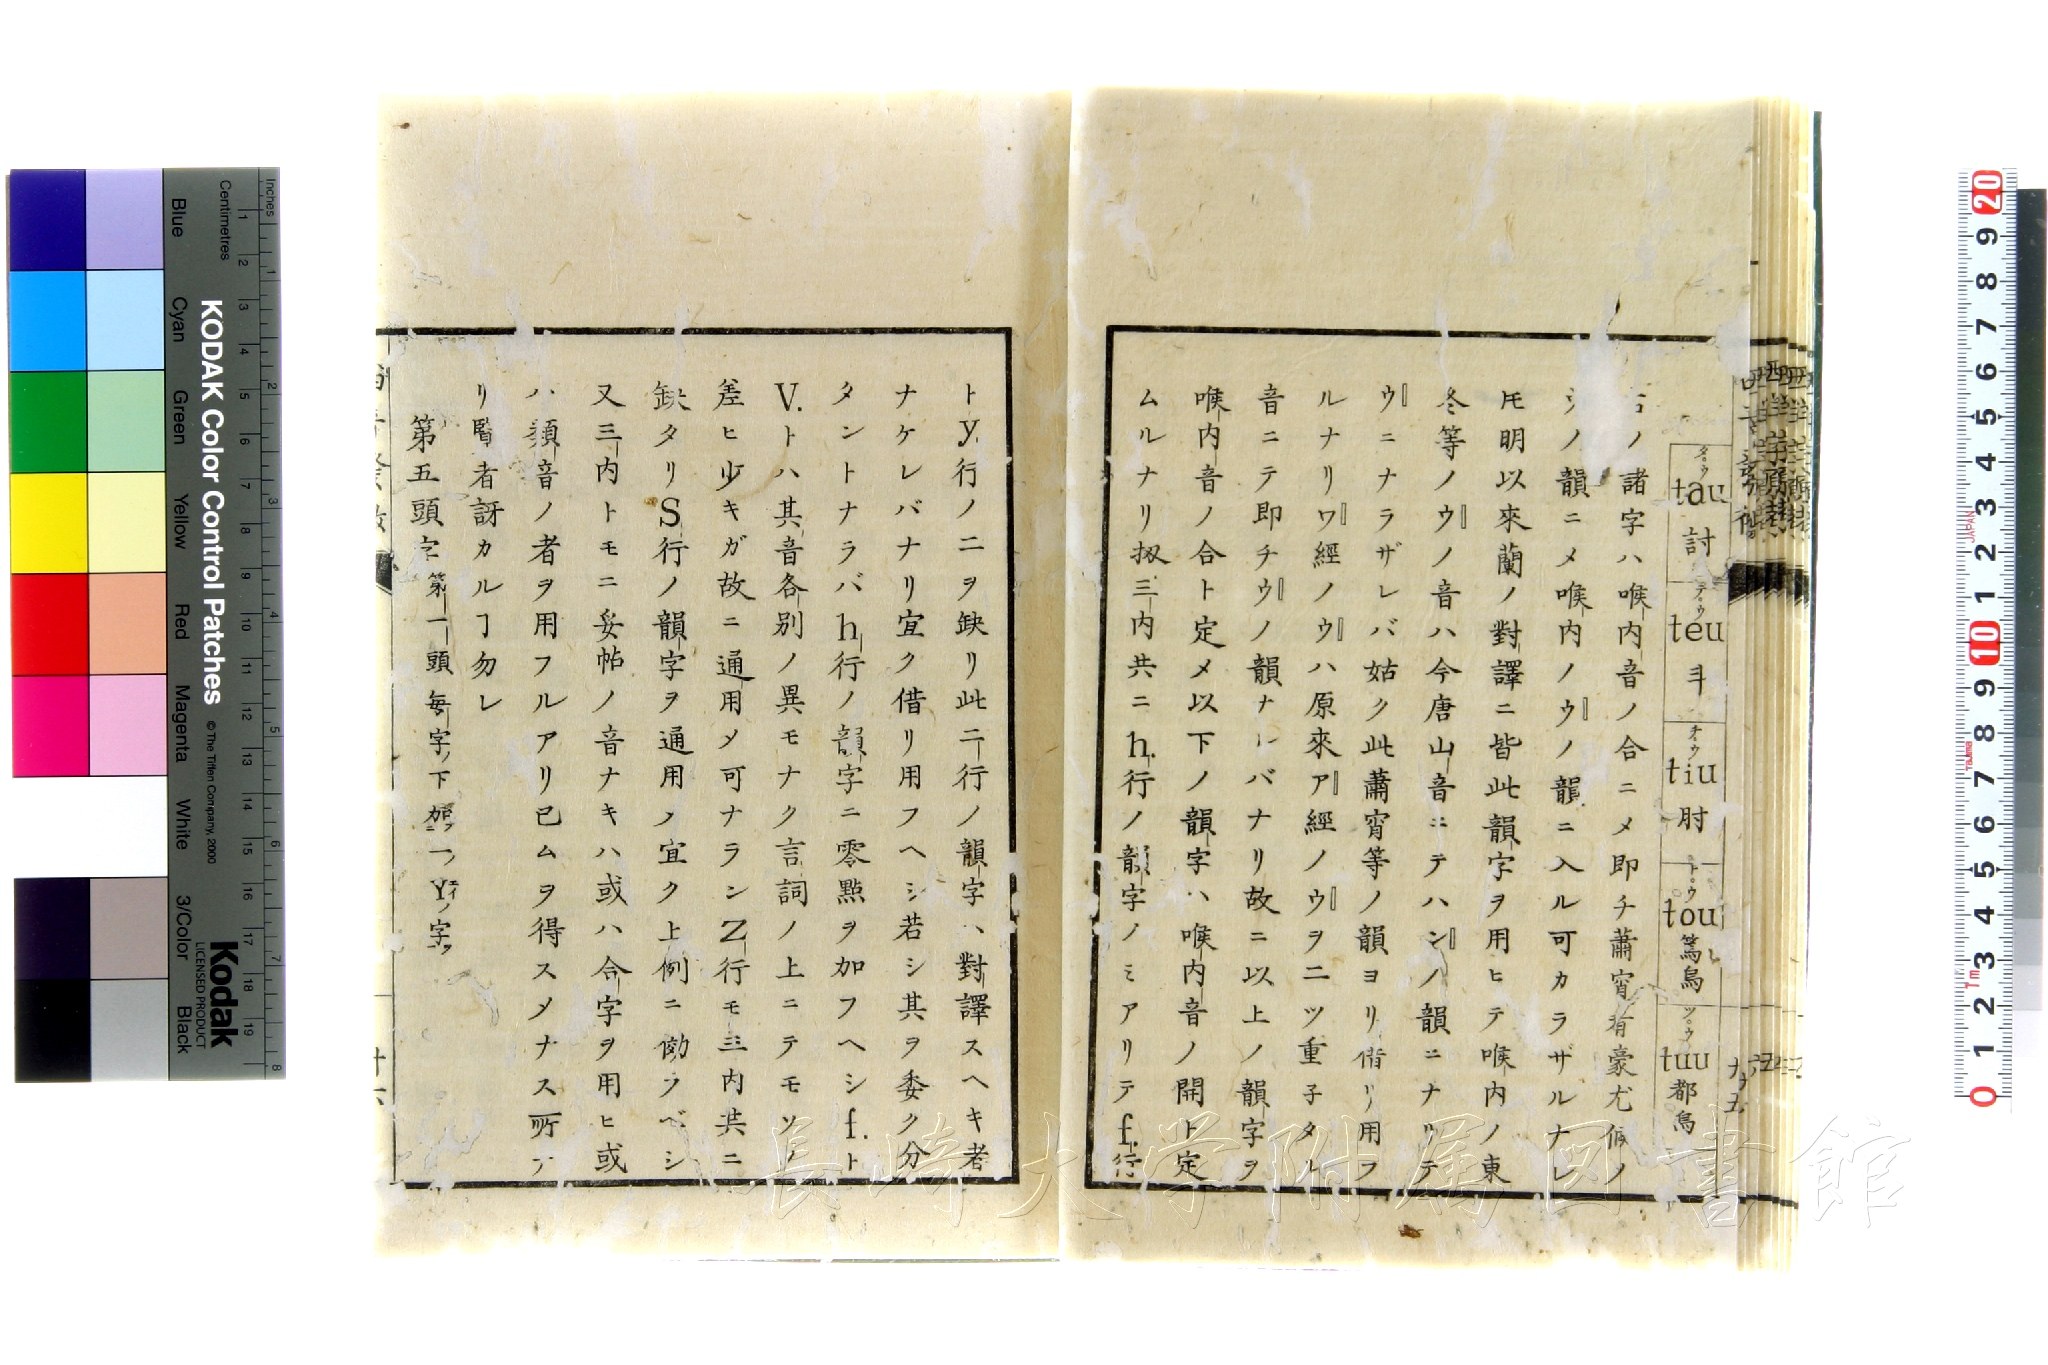 タウ tau 討
テウ teu 斗
チウ tiu 肘
トウ tou 篤烏
ツウ tuu 都烏
右ノ諸字ハ喉内音ノ合ニメ即チ蕭宵肴豪尤侯ノ
ウノ韻ニメ喉内ノウノ韻ニ入ル可カラザルナレ
𪜈明以來蘭ノ對譯ニ皆此韻字ヲ用ヒテ喉内ノ東
冬等ノウノ音ハ今唐山音ニテハンノ韻ニナリテ
ウニナラザレバ姑ク此蕭宵等ノ韻ヨリ借リ用フ
ルナリワ經ノウハ原來ア經ノウヲ二ツ重子タル
音ニテ即チウノ韻ナルバナリ故ニ以上ノ韻字ヲ
喉内音ノ合ト定メ以下ノ韻字ハ喉内音ノ開ト定
ムルナリ扨三内共ニh.行ノ韻字ノミアリテf.行
トy.行ノニヲ缺リ此二行ノ韻字ハ對譯スヘキ者
ナケレバナリ宜ク借リ用フヘシ若シ其ヲ委ク分
タントナラバh行ノ韻字ニ零點ヲ加フヘシf.ト
V.トハ其音各別ノ異モナク言詞ノ上ニテモソノ
差ヒ少キガ故ニ通用メ可ナランZ行モ三内共ニ
缺タリS行ノ韻字ヲ通用ノ宜ク上例ニ傚フベシ
又三内トモニ妥帖ノ音ナキハ或ハ合字ヲ用ヒ或
ハ類音ノ者ヲ用フルアリ已ムヲ得スメナス所ナ
リ覧者訝カルヿ勿レ
第五頭字 第一頭毎字ノ下ニ加フ一ツYイノ字ヲ
十六
KODAK Color Control Patches
© The Tiffen Company, 2000
Kodak
LICENSED PRODUCT
Inches
Centimetres
Blue
Cyan
Green
Yellow
Red
Magenta
White
3/Color
Black
1 2 3 4 5 6 7 8 9 10 11 12 13 14 15 16 17 18 19
1 2 3 4 5 6 7 8
20 9 8 7 6 5 4 3 2 1 10 9 8 7 6 5 4 3 2 1 0
JAPAN
Tajima
Tm
長崎大学附属図書館